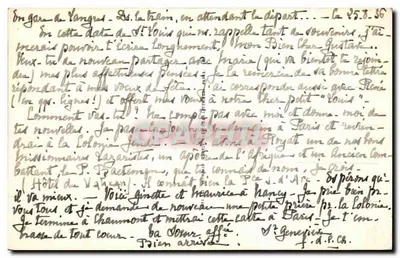 En gare de Langres - Ds. le train, en attendant le départ.... le 25.8.56
En cette date de St Louis qui ns. rappelle tant de souvenirs, j'ai
merais pouvoir t'écrire longuement, mon Bien cher Gustave.
Veux-tu de nouveau partager avec Marie (qui va bientôt te rejoin-
dre) mes plus affectueuses pensées. Je la remercie de sa bonne lettre
répondant à mes voeux de fête. J'ai correspondu aussi avec René
(en qq. lignes!) et offert mes voeux à notre cher petit "Louis".
Comment vas-tu? Ne compte pas avec moi et donne-moi de
tes nouvelles. Je pa à Paris et revien-
drai à la Colonie Royat un de nos bons
missionnaires Lazaristes, un apôtre de l'Afrique et un ancien Com-
battant le P.
Hôtel du Vatican. Il connaît bien la espérons qu'
il va mieux. - Voici Ginette et Maurice à Nancy - Je prie bien pr.
vous tous et je demande de nouveau une petite prière pr. la Colonie.
Je termine à Chaumont et mettrai cette carte à Paris. Je t'em-
brasse de tout coeur. ta Soeur affée Sr Geneviève
Bien arrivée f.d.l.Ch.